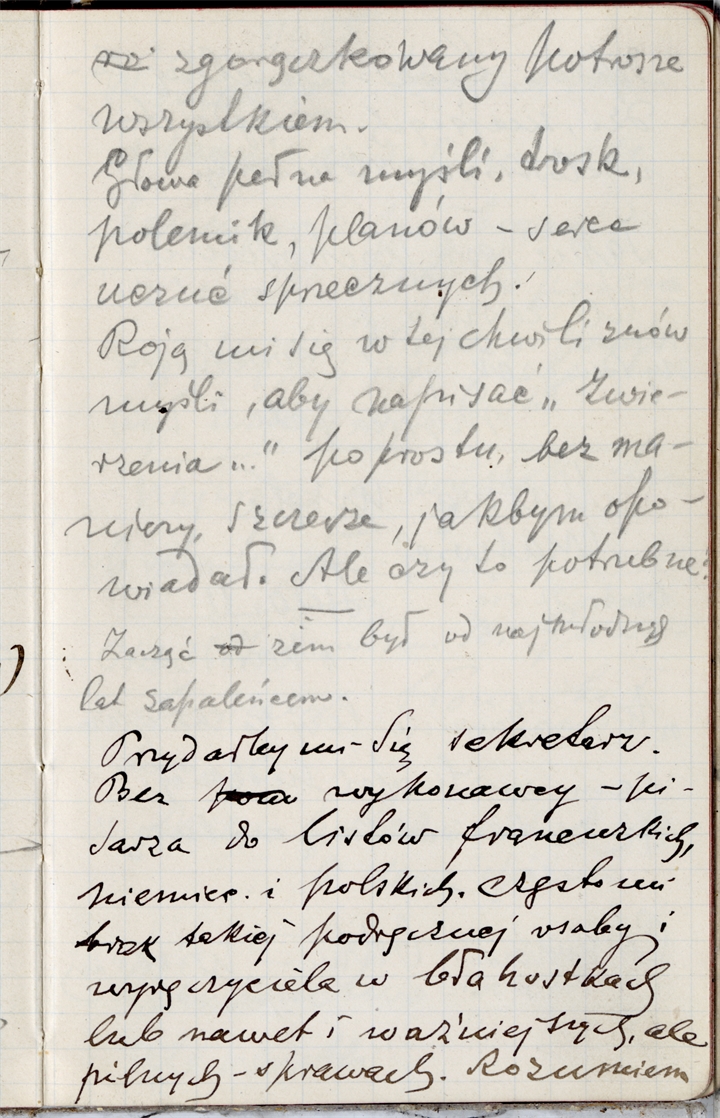 zgorączkowany potrosze
wszystkiem.
Głowa pełna myśli, trosk,
polemik, planów – serce
uczuć sprzecznych.
Roją mi się w tej chwili znów
myśli, aby napisać „Zwie-
rzenia..." poprostu, bez ma-
niery, szczerze, jakbym opo-
wiadał. Ale czy to potrzebne?
Zacząć od żem był od najmłodszych
lat zapaleńcem.
Przydałby mi się sekretarz.
Bez wykonawcy – pi-
sarza do listów francuskich,
niemiec. i polskich. Często mi
brak takiej podręcznej osoby i
wyręczyciela w błahostkach
lub nawet i ważniejszych, ale
pilnych – sprawach. Rozumiem